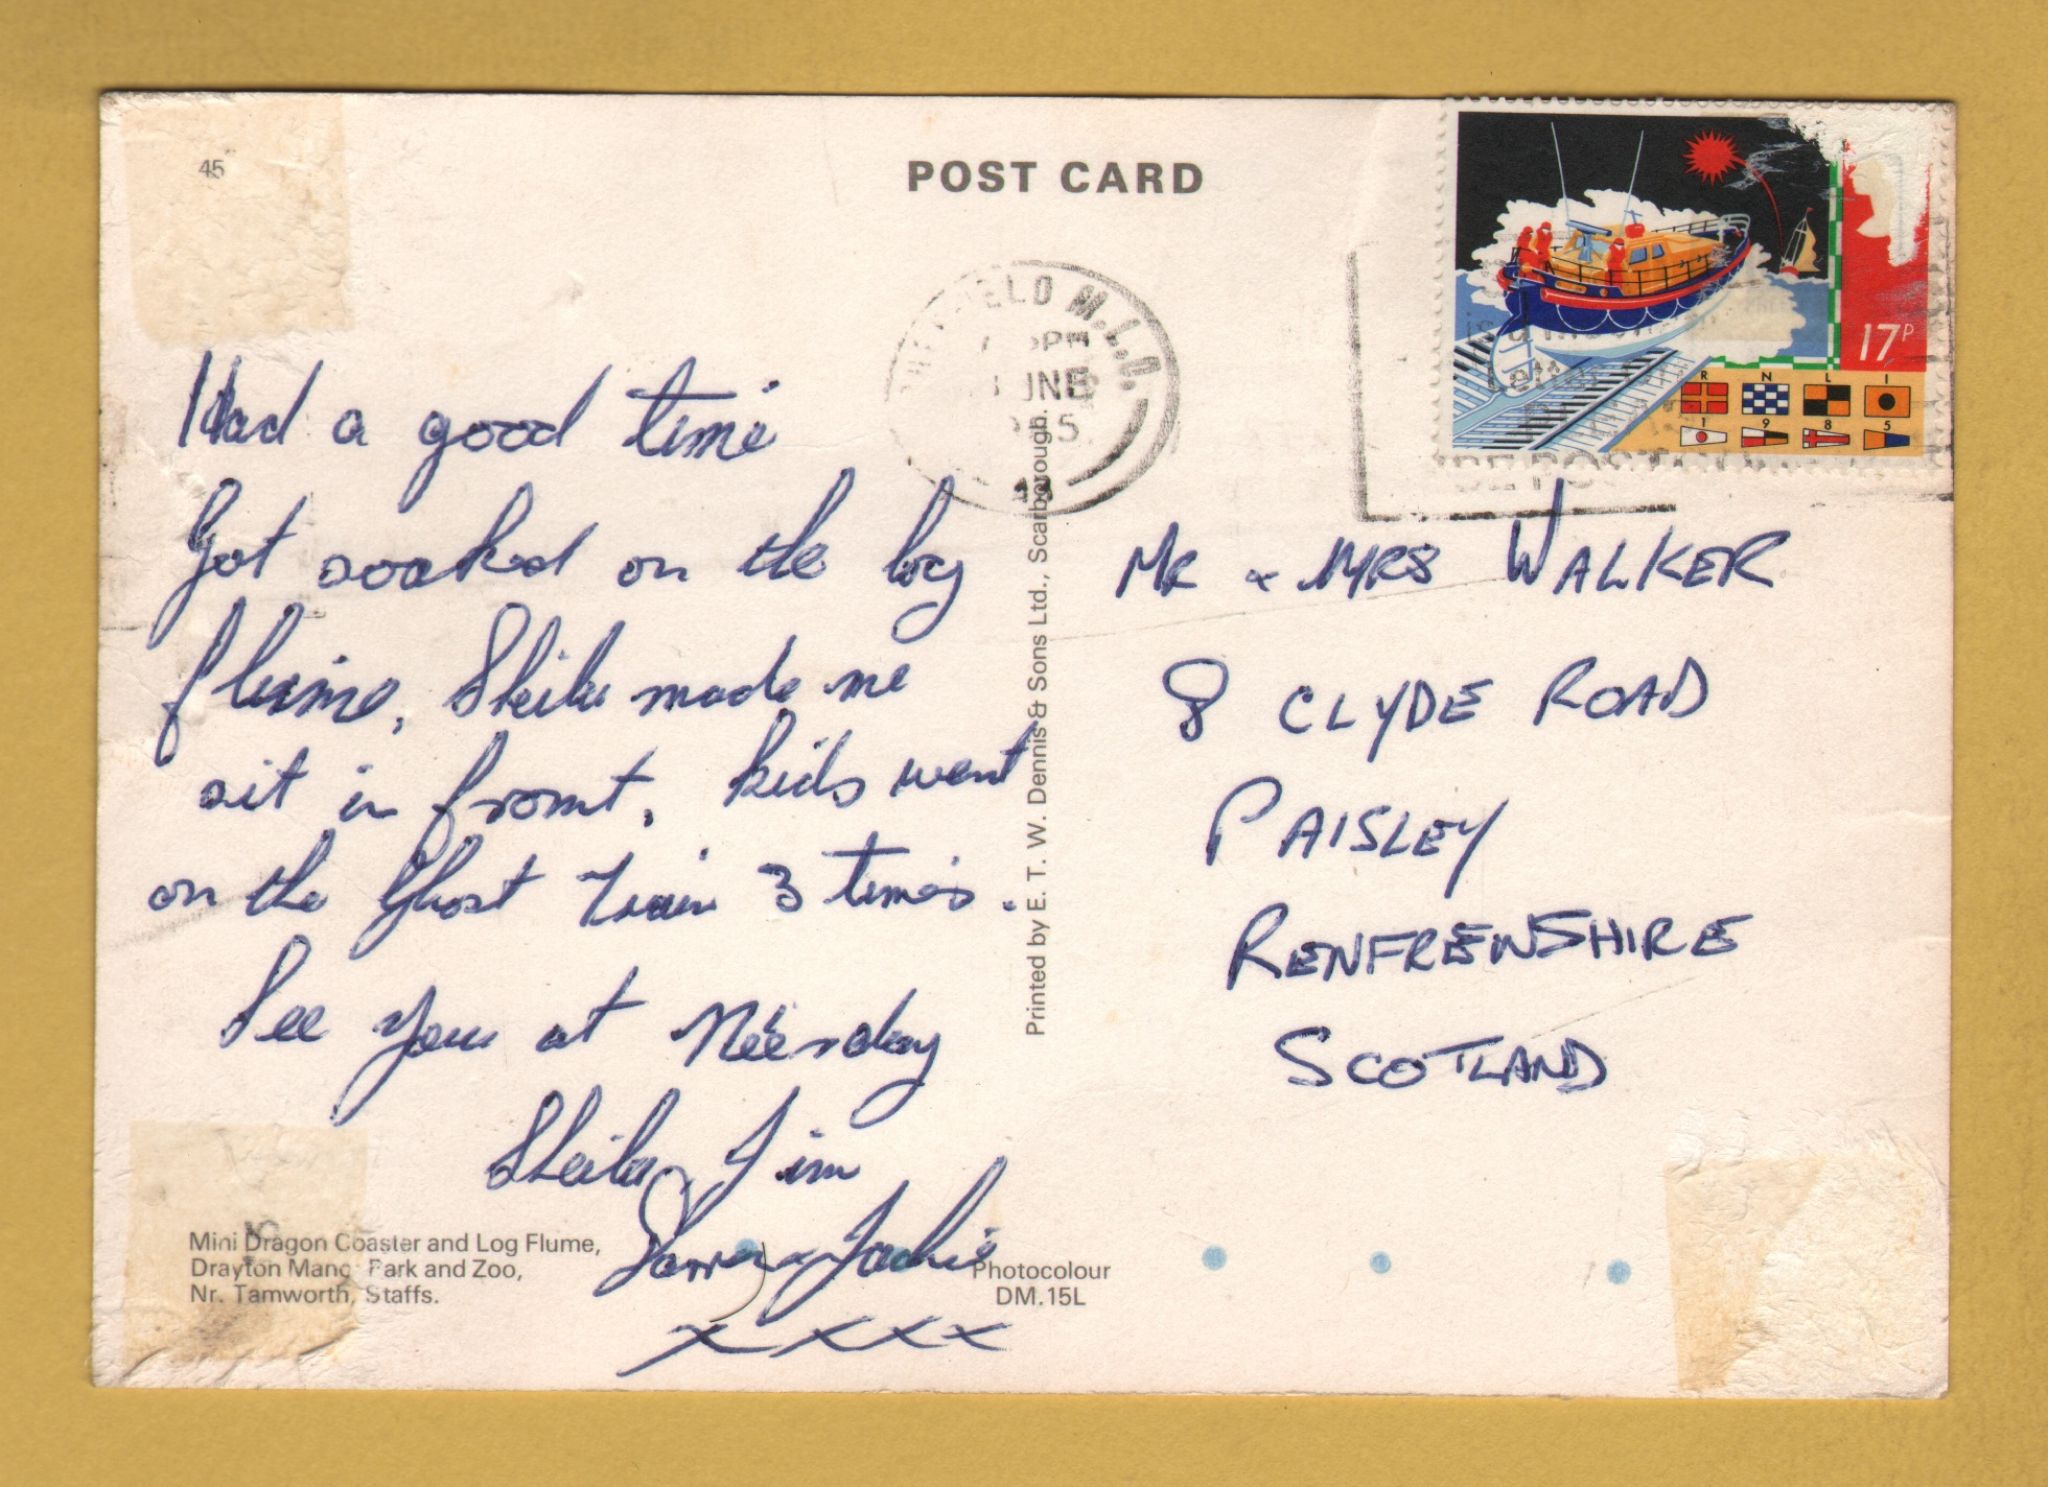 45
POST CARD
17P
R N L I
1 9 8 5
M.L.O.
Had a good time
Got soaked on the log
flume, Sheila made me
sit in fromt, kids went
on the Ghost Train 3 times.
See you at
Sheila, Jim
& Jackie
x x x x
Mr & MRS WALKER
8 CLYDE ROAD
PAISLEY
RENFREWSHIRE
SCOTLAND
Printed by E. T. W. Dennis & Sons Ltd., Scarborough.
Mini Dragon Coaster and Log Flume,
Drayton Mano Park and Zoo,
Nr. Tamworth, Staffs.
Photocolour
DM.15L